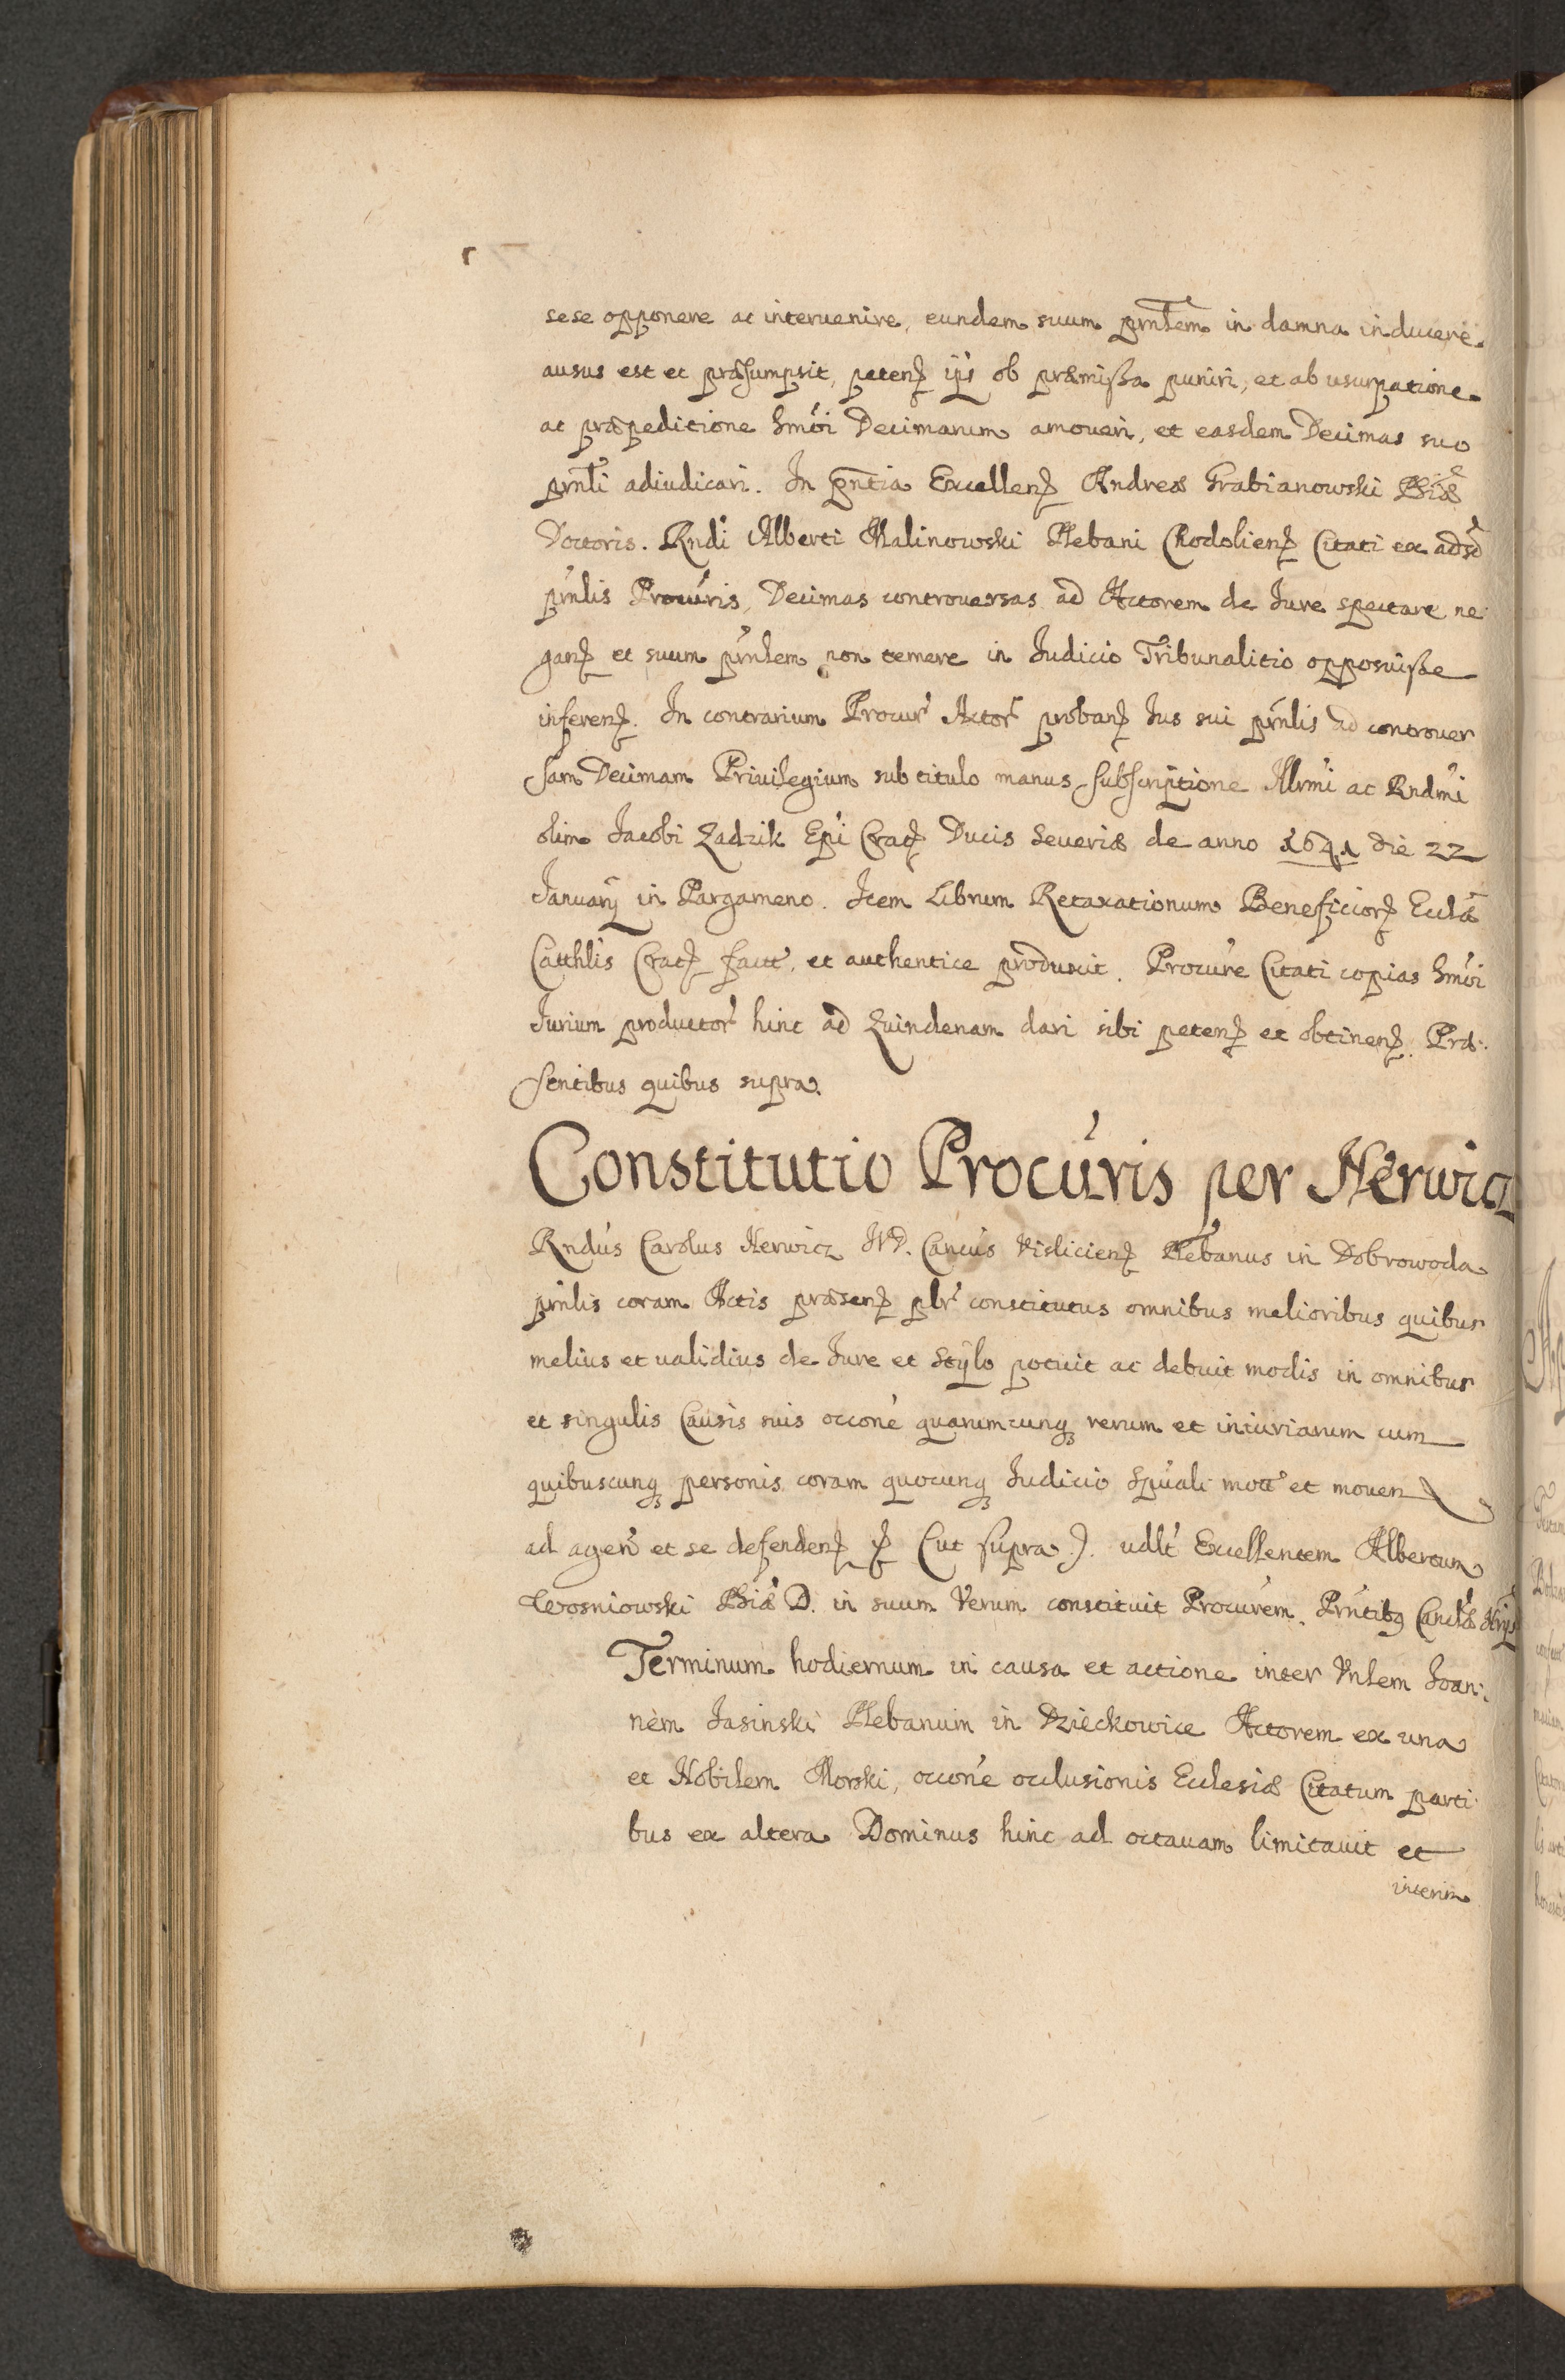 sese opponere ac interuenire, eundem suum prnlem in damna inducere
ausus est et præsumpsit, petenş ijs ob præmissa puniri, et ab usurpatione
ac præpeditione hmoi Decimarum amoueri, et easdem Decimas suo
prnli adiudicari. In pntia Excellenş Andreæ Grabianowski Phiæ
Doctoris. Rndi Alberti Malinowski Plebani Chodolienş Citati ex adso
prnlis Procuris, Decimas controuersas ad Actorem de Iure spectare ne
ganş et suum prnlem non temere in Iudicio Tribunalitio opposuisse
inferenş. In contrarium Procur Actor probanş Ius sui prnlis ad controuer
sam Decimam Priuilegium sub titulo manus subscriptione Illrmi ac Rndmi
olim Iacobi Zadzik Epi Cracş Ducis Seueriæ de anno 1641 die 22
Ianuarij in Pargameno. Item Librum Retaxationum Beneficiorş Ecclæ
Catthlis Cracş factt, et authentice produxit. Procure Citati copias hmoi
Iurium productor hinc ad Quindenam dari sibi petenş et obtinenş. Præ
sentibus quibus supra.
Constitutio Procuris per Herwicz
Rndus Carolus Herwicz IVD. Cancus Vislicienş Plebanus in Dobrowoda
prnlis coram Actis præsenş plr constitutus omnibus melioribus quibus
melius et ualidius de Iure et Stylo potuit ac debuit modis in omnibus
et singulis Causis suis occone quarumcunq rerum et iniuriarum cum
quibuscunq personis coram quocunq Iudicio Spuali mott et mouen
ad agen et se defendenş (ut supra). udlt Excellentem Albertum
Wosniowski Phiæ D. in suum Verum constituit Procurem. Prntibq Canclæ
Terminum hodiernum in causa et actione inter Vnlem Ioan
nem Jasinski Plebanum in Dzieckowice Actorem ex una
et Nobilem Morski, occone occlusionis Ecclesiæ Citatum parti
bus ex altera Dominus hinc ad octauam limitauit et
interim